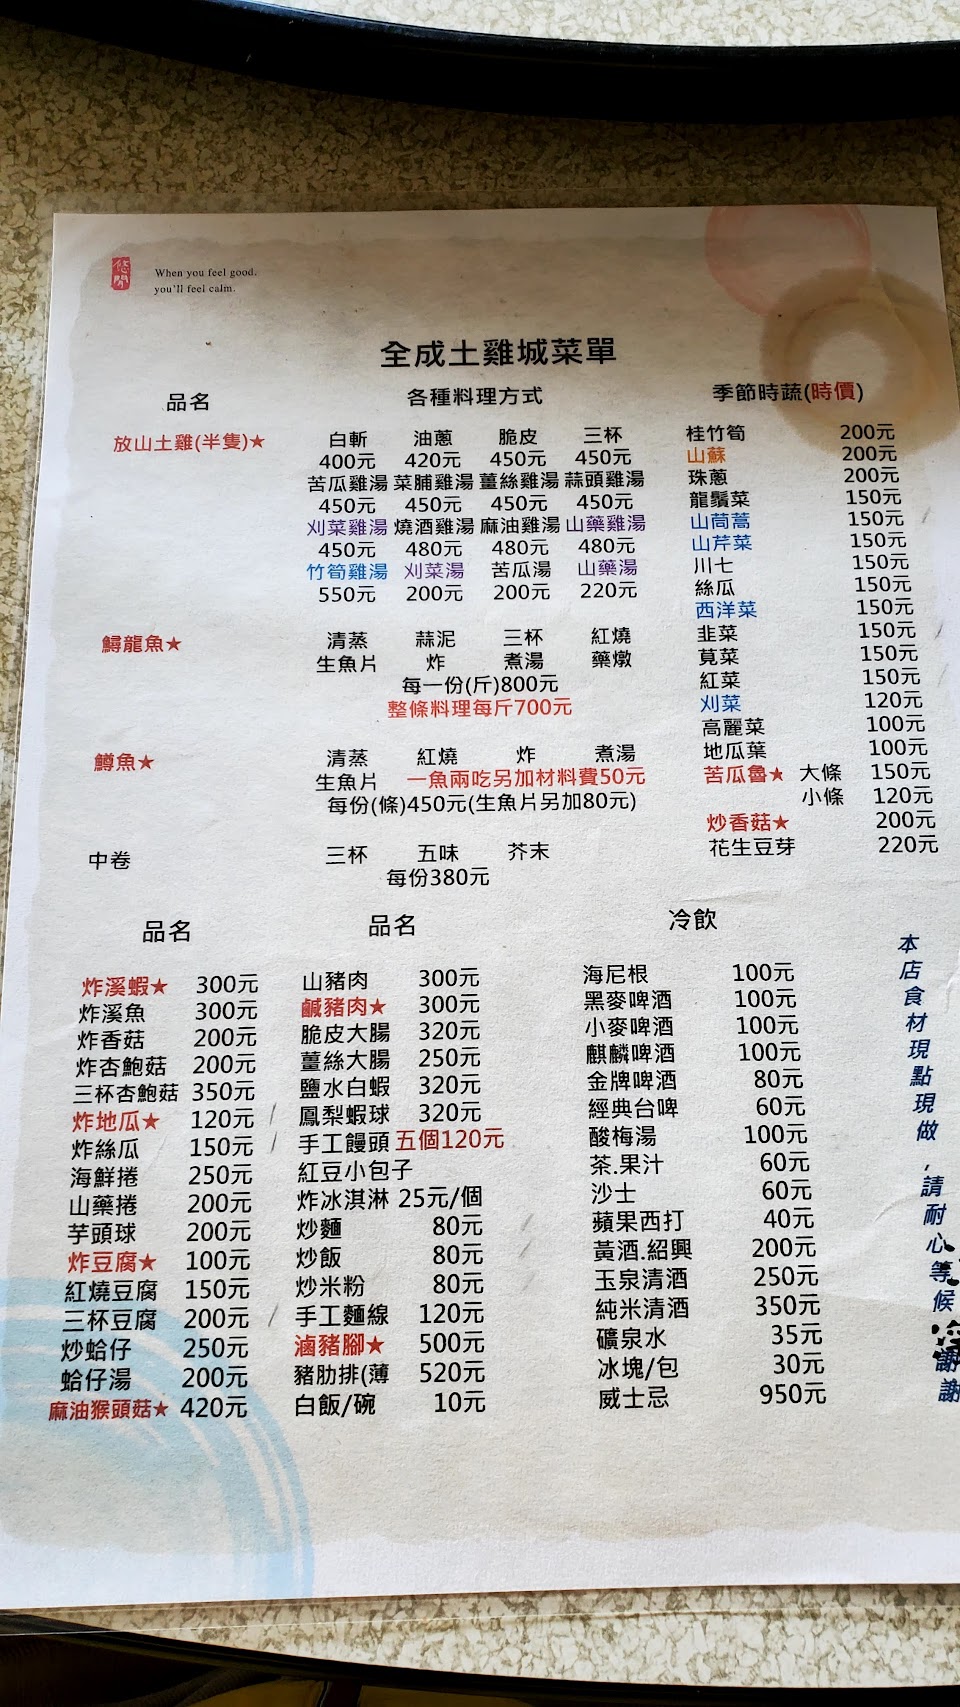 悠閒
When you feel good.
you'll feel calm.
全成土雞城菜單
品名 各種料理方式 季節時蔬(時價)
放山土雞(半隻)★
白斬 油蔥 脆皮 三杯
400元 420元 450元 450元
苦瓜雞湯 菜脯雞湯 薑絲雞湯 蒜頭雞湯
450元 450元 450元 450元
刈菜雞湯 燒酒雞湯 麻油雞湯 山藥雞湯
450元 480元 480元 480元
竹筍雞湯 刈菜湯 苦瓜湯 山藥湯
550元 200元 200元 220元
鱘龍魚★
清蒸 蒜泥 三杯 紅燒
生魚片 炸 煮湯 藥燉
每一份(斤)800元
整條料理每斤700元
鱒魚★
清蒸 紅燒 炸 煮湯
生魚片 一魚兩吃另加材料費50元
每份(條)450元(生魚片另加80元)
中卷
三杯 五味 芥末
每份380元
桂竹筍 200元
山蘇 200元
珠蔥 200元
龍鬚菜 150元
山茼蒿 150元
山芹菜 150元
川七 150元
絲瓜 150元
西洋菜 150元
韭菜 150元
莧菜 150元
紅菜 150元
刈菜 120元
高麗菜 100元
地瓜葉 100元
苦瓜魯★ 大條 150元
小條 120元
炒香菇★ 200元
花生豆芽 220元
品名
炸溪蝦★ 300元
炸溪魚 300元
炸香菇 200元
炸杏鮑菇 200元
三杯杏鮑菇 350元
炸地瓜★ 120元
炸絲瓜 150元
海鮮捲 250元
山藥捲 200元
芋頭球 200元
炸豆腐★ 100元
紅燒豆腐 150元
三杯豆腐 200元
炒蛤仔 250元
蛤仔湯 200元
麻油猴頭菇★ 420元
品名
山豬肉 300元
鹹豬肉★ 300元
脆皮大腸 320元
薑絲大腸 250元
鹽水白蝦 320元
鳳梨蝦球 320元
手工饅頭 五個120元
紅豆小包子
炸冰淇淋 25元/個
炒麵 80元
炒飯 80元
炒米粉 80元
手工麵線 120元
滷豬腳★ 500元
豬肋排(薄 520元
白飯/碗 10元
冷飲
海尼根 100元
黑麥啤酒 100元
小麥啤酒 100元
麒麟啤酒 100元
金牌啤酒 80元
經典台啤 60元
酸梅湯 100元
茶.果汁 60元
沙士 60元
蘋果西打 40元
黃酒.紹興 200元
玉泉清酒 250元
純米清酒 350元
礦泉水 35元
冰塊/包 30元
威士忌 950元
本店食材現點現做,請耐心等候 謝謝